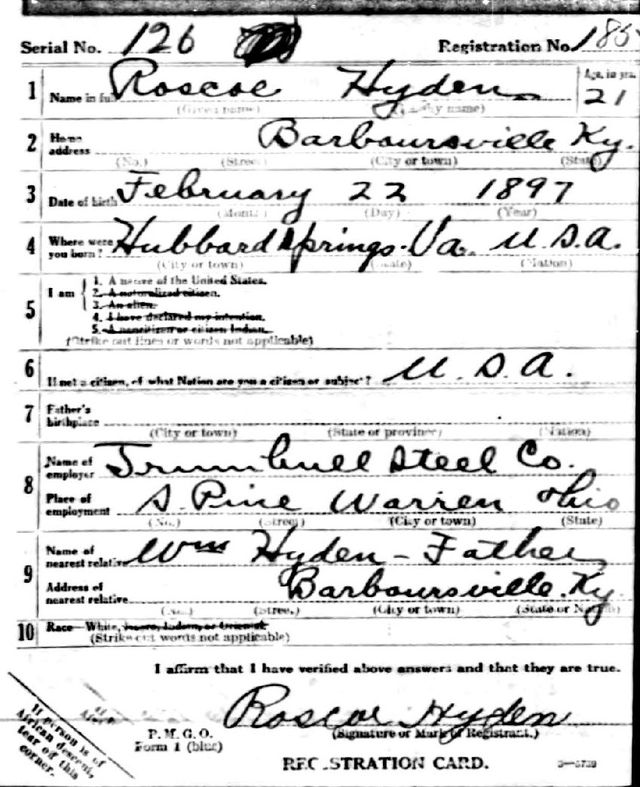 Serial No. 126 Registration No. 185
1 Name in full Roscoe Hyden Age, in yrs. 21
(Given name) (Family name)
2 Home address Barboursville Ky.
(No.) (Street) (City or town) (State)
3 Date of birth February 22 1897
(Month) (Day) (Year)
4 Where were you born? Hubbard Springs Va. U.S.A.
(City or town) (State) (Nation)
5 I am
1. A native of the United States.
2. A naturalized citizen.
3. An alien.
4. I have declared my intention.
5. A noncitizen or citizen Indian.
(Strike out lines or words not applicable)
6 If not a citizen, of what Nation are you a citizen or subject? U.S.A.
7 Father's birthplace
(City or town) (State or province) (Nation)
8 Name of employer Trumbull Steel Co.
Place of employment S. Pine Warren Ohio
(No.) (Street) (City or town) (State)
9 Name of nearest relative Wm Hyden - Father
Address of nearest relative Barboursville. Ky
(No.) (Street.) (City or town) (State or Nation)
10 Race—White,
(Strike out words not applicable)
I affirm that I have verified above answers and that they are true.
Roscoe Hyden
(Signature or Mark of Registrant.)
P. M. G. O.
Form 1 (blue)
REGISTRATION CARD.
If person is of
African descent,
tear off this
corner.